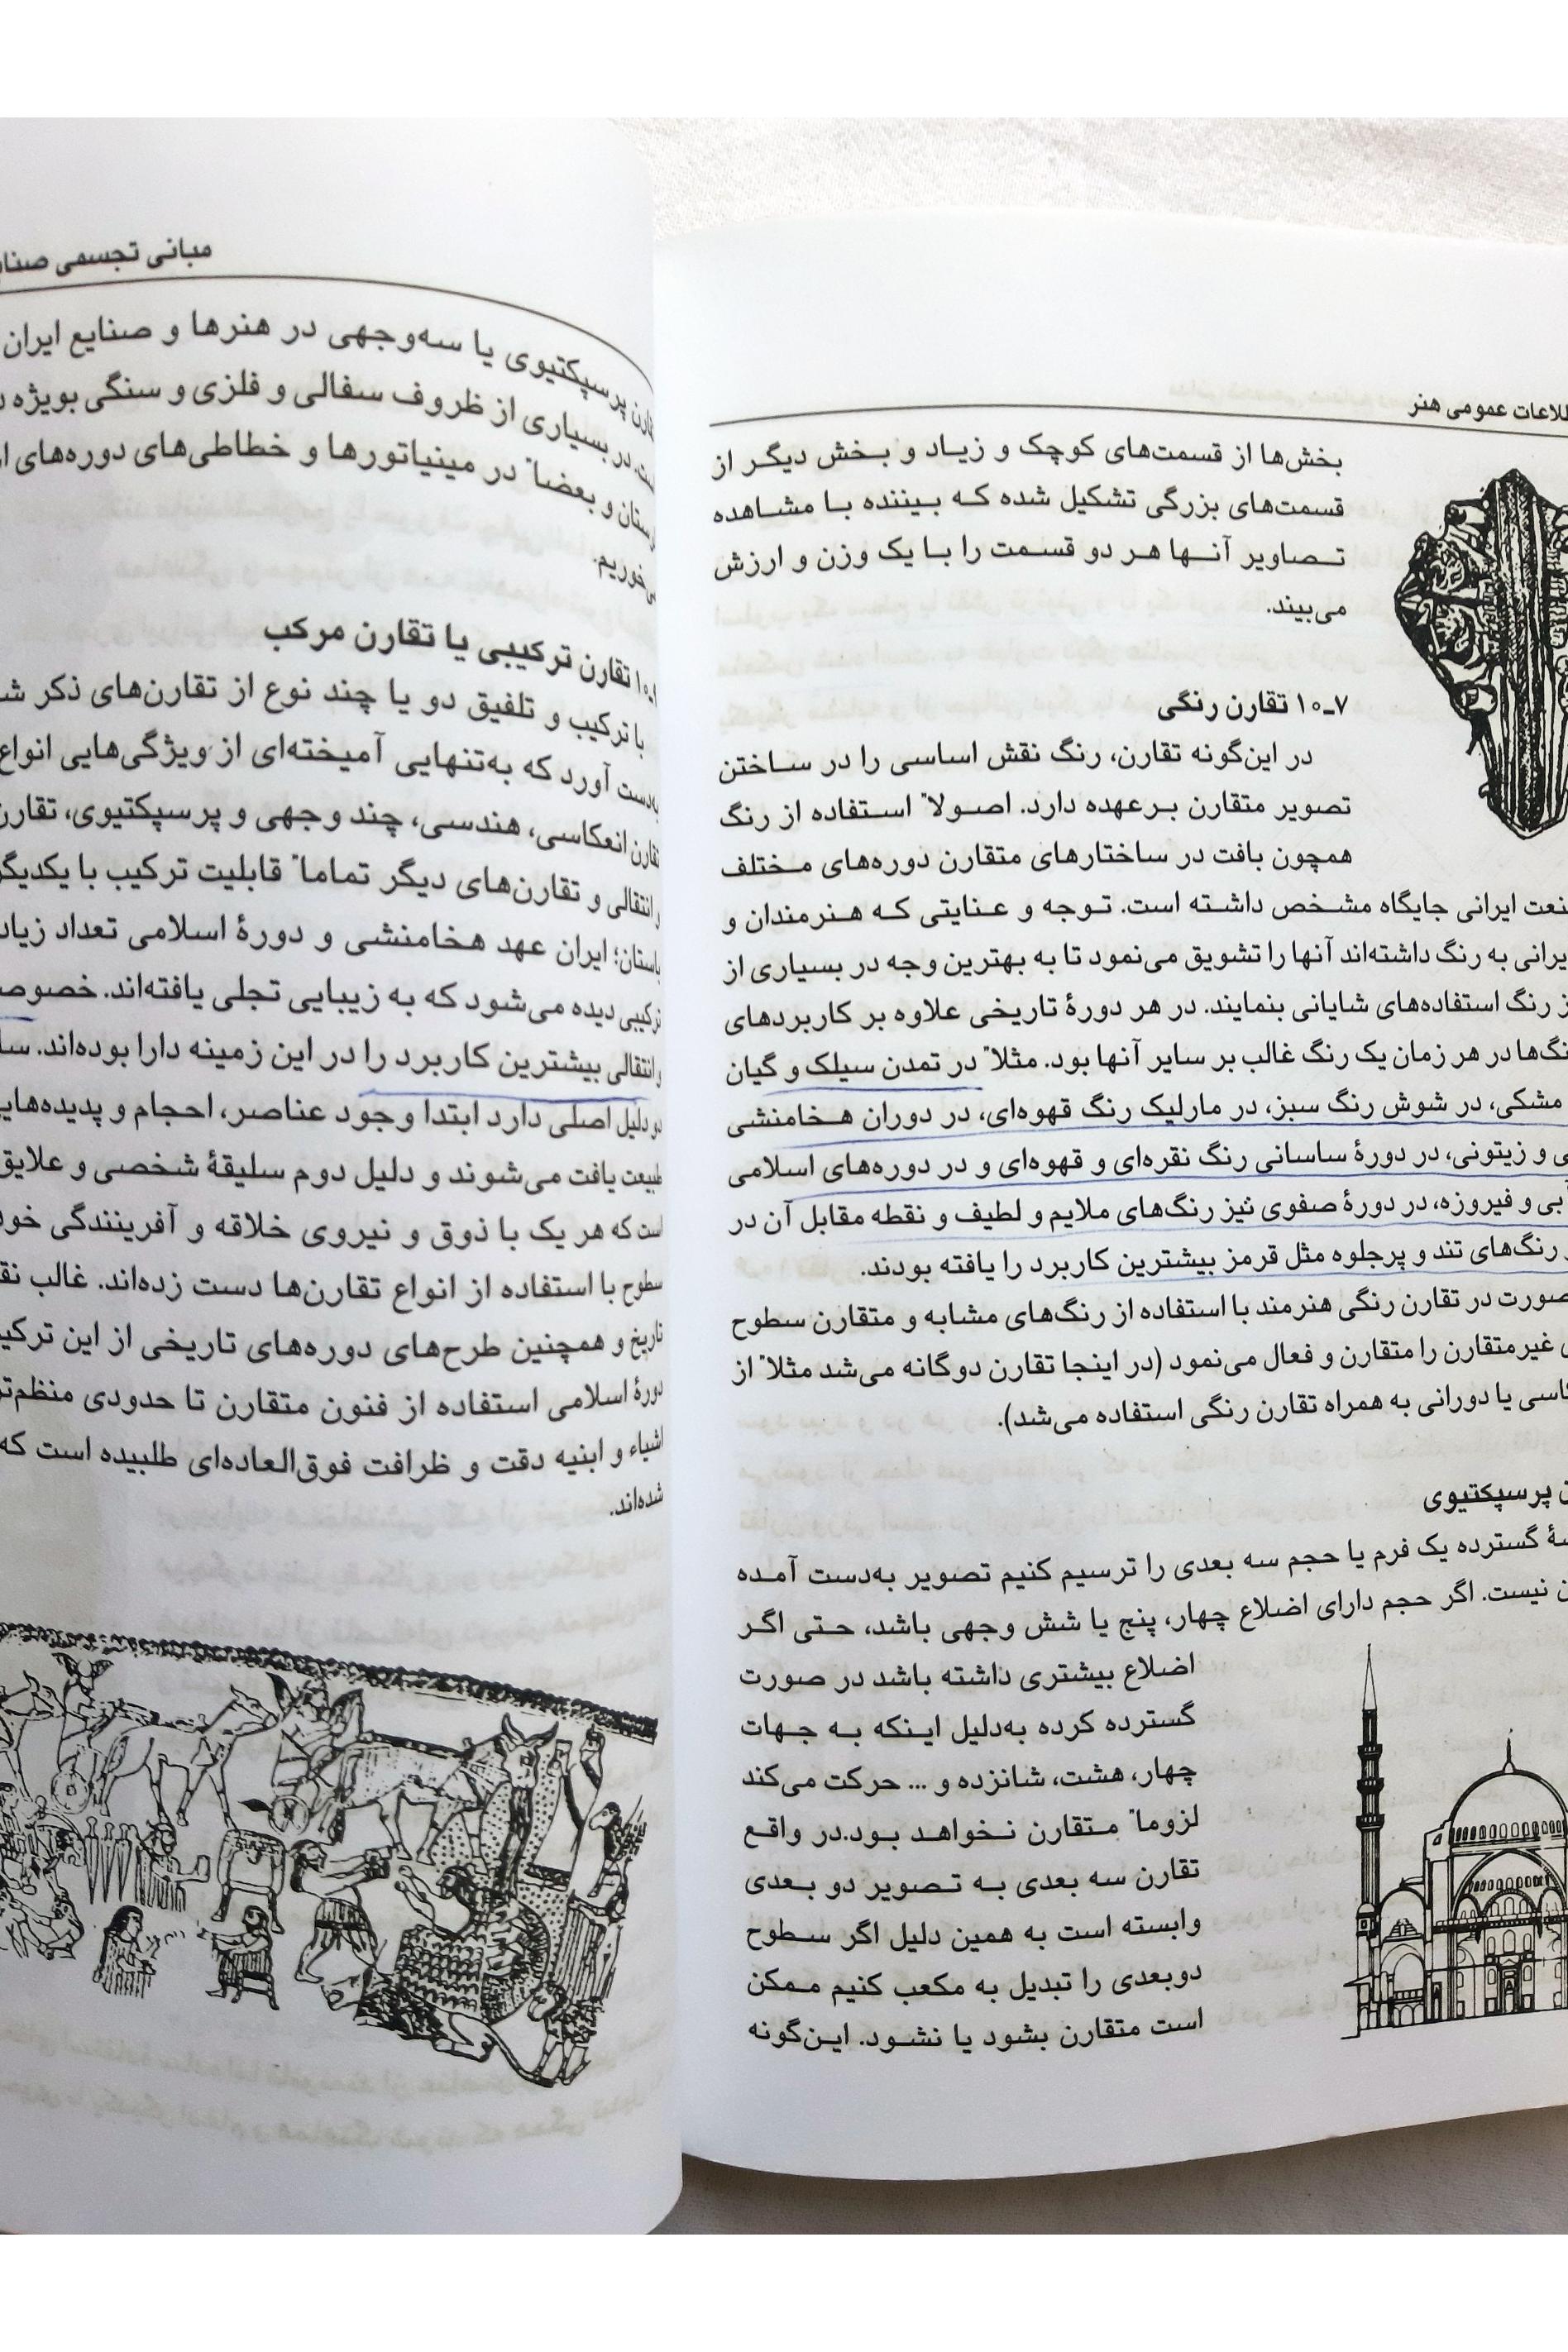 عمومی هنر
بخش‌ها از قسمت‌های کوچک و زیاد و بخش دیگر از
قسمت‌های بزرگی تشکیل شده که بیننده با مشاهده
تصاویر آنها هر دو قسمت را با یک وزن و ارزش
می‌بیند.
۷ـ۱۰ تقارن رنگی
در این‌گونه تقارن، رنگ نقش اساسی را در ساختن
تصویر متقارن برعهده دارد. اصولاً استفاده از رنگ
همچون بافت در ساختارهای متقارن دوره‌های مختلف
ایرانی جایگاه مشخص داشته است. توجه و عنایتی که هنرمندان و
به رنگ داشته‌اند آنها را تشویق می‌نمود تا به بهترین وجه در بسیاری از
رنگ استفاده‌های شایانی بنمایند. در هر دورهٔ تاریخی علاوه بر کاربردهای
در هر زمان یک رنگ غالب بر سایر آنها بود. مثلاً در تمدن سیلک و گیان
مشکی، در شوش رنگ سبز، در مارلیک رنگ قهوه‌ای، در دوران هخامنشی
و زیتونی، در دورهٔ ساسانی رنگ نقره‌ای و قهوه‌ای و در دوره‌های اسلامی
و فیروزه، در دورهٔ صفوی نیز رنگ‌های ملایم و لطیف و نقطه مقابل آن در
رنگ‌های تند و پرجلوه مثل قرمز بیشترین کاربرد را یافته بودند.
صورت در تقارن رنگی هنرمند با استفاده از رنگ‌های مشابه و متقارن سطوح
غیرمتقارن را متقارن و فعال می‌نمود (در اینجا تقارن دوگانه می‌شد مثلاً از
یا دورانی به همراه تقارن رنگی استفاده می‌شد).
پرسپکتیوی
گسترده یک فرم یا حجم سه بعدی را ترسیم کنیم تصویر به‌دست آمده
نیست. اگر حجم دارای اضلاع چهار، پنج یا شش وجهی باشد، حتی اگر
اضلاع بیشتری داشته باشد در صورت
گسترده کرده به‌دلیل اینکه به جهات
چهار، هشت، شانزده و ... حرکت می‌کند
لزوماً متقارن نخواهد بود.در واقع
تقارن سه بعدی به تصویر دو بعدی
وابسته است به همین دلیل اگر سطوح
دوبعدی را تبدیل به مکعب کنیم ممکن
است متقارن بشود یا نشود. این‌گونه
مبانی تجسمی
پرسپکتیوی یا سه‌وجهی در هنرها و صنایع ایران
در بسیاری از ظروف سفالی و فلزی و سنگی بویژه
و بعضاً در مینیاتورها و خطاطی‌های دوره‌های
تقارن ترکیبی یا تقارن مرکب
با ترکیب و تلفیق دو یا چند نوع از تقارن‌های ذکر
آورد که به‌تنهایی آمیخته‌ای از ویژگی‌هایی انواع
تقارن انعکاسی، هندسی، چند وجهی و پرسپکتیوی، تقارن
انتقالی و تقارن‌های دیگر تماماً قابلیت ترکیب با
باستان؛ ایران عهد هخامنشی و دورهٔ اسلامی تعداد
ترکیبی دیده می‌شود که به زیبایی تجلی یافته‌اند.
انتقالی بیشترین کاربرد را در این زمینه دارا بوده‌اند.
دو دلیل اصلی دارد ابتدا وجود عناصر، احجام و
طبیعت یافت می‌شوند و دلیل دوم سلیقهٔ شخصی و علایق
است که هر یک با ذوق و نیروی خلاقه و آفرینندگی
سطوح با استفاده از انواع تقارن‌ها دست زده‌اند. غالب
تاریخ و همچنین طرح‌های دوره‌های تاریخی از این
دورهٔ اسلامی استفاده از فنون متقارن تا حدودی
اشیاء و ابنیه دقت و ظرافت فوق‌العاده‌ای طلبیده است که
شده‌اند.